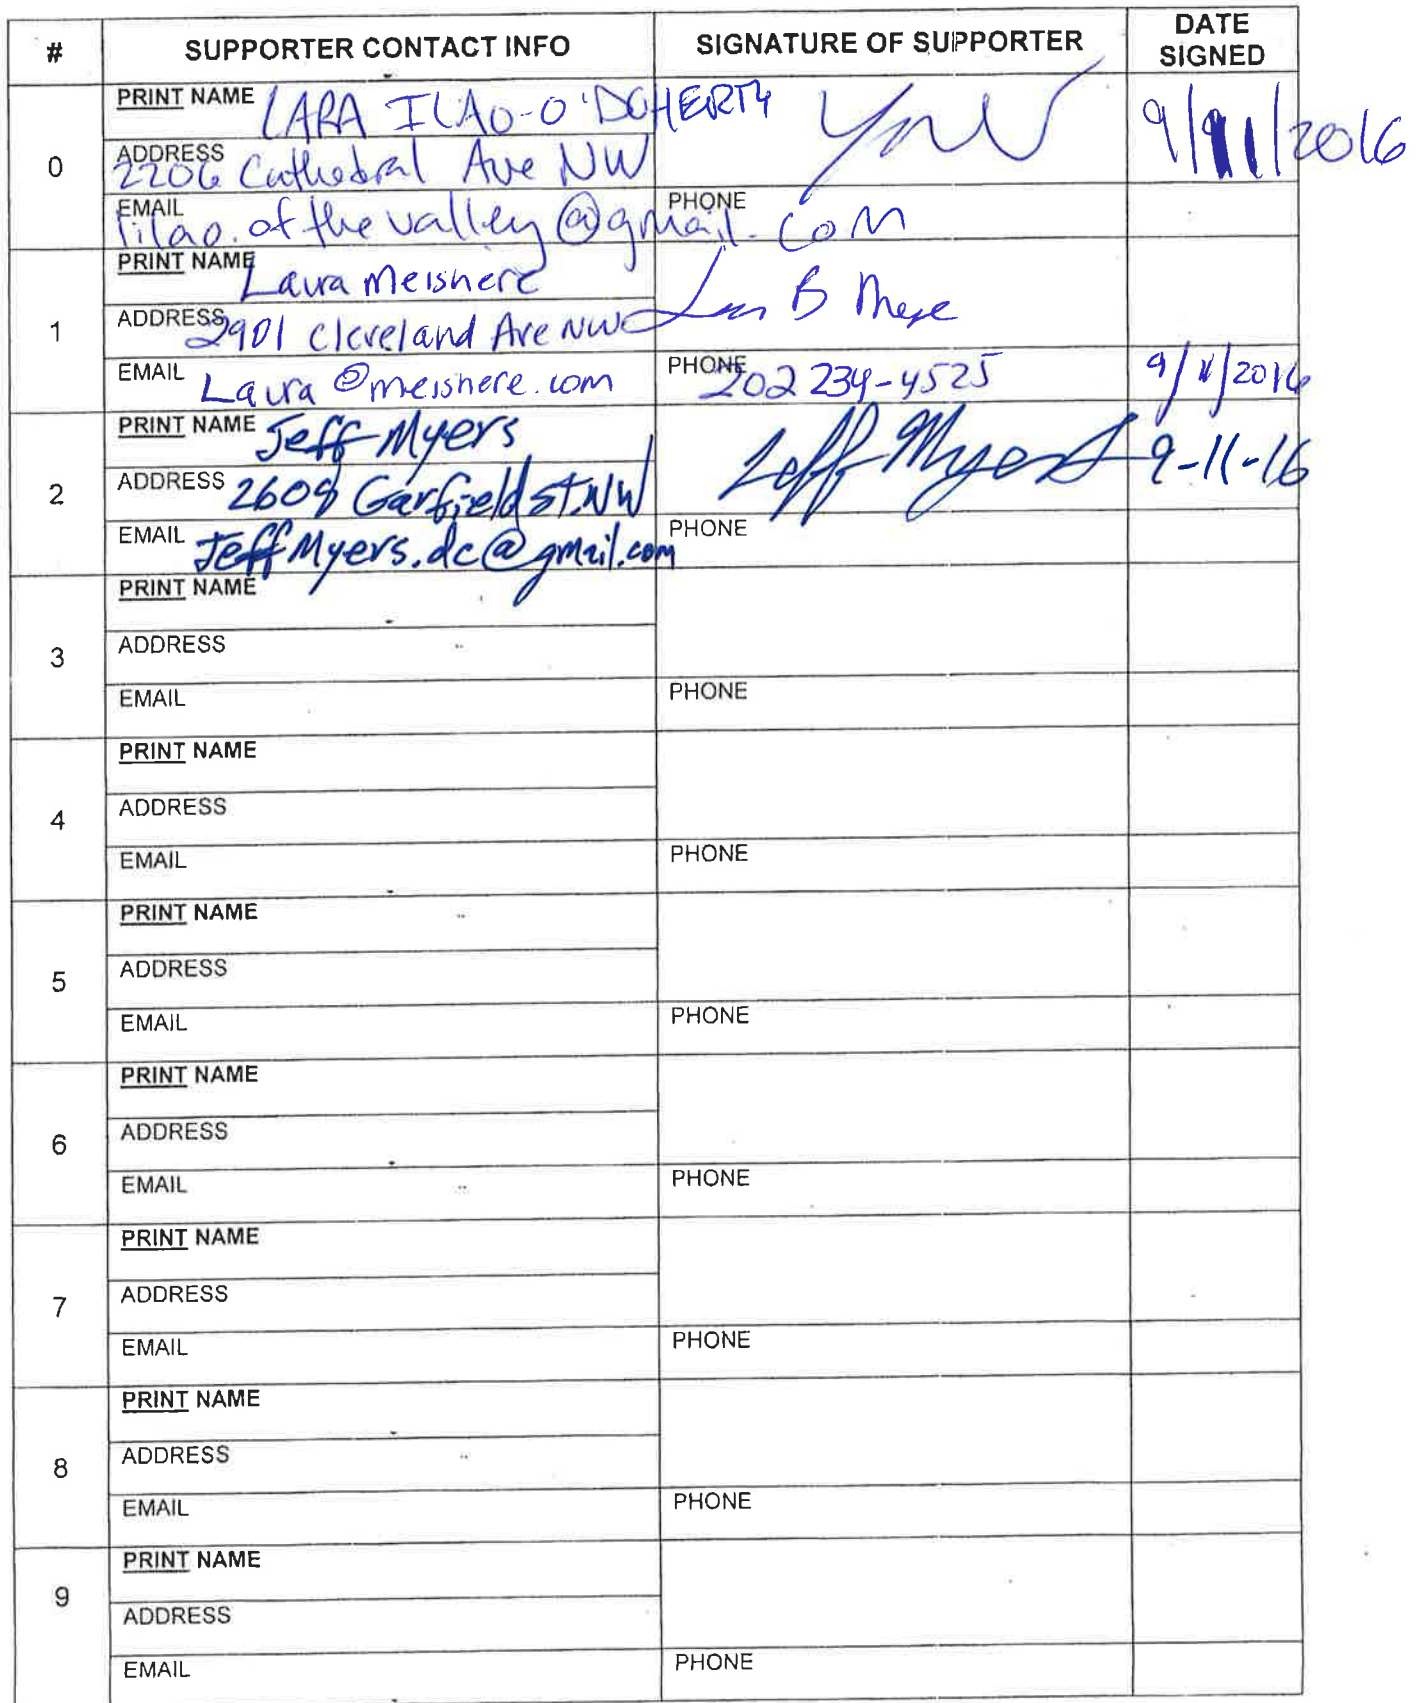 # SUPPORTER CONTACT INFO SIGNATURE OF SUPPORTER DATE SIGNED
0
PRINT NAME LARA ILAO-O'DOHERTY
ADDRESS 2206 Cathedral Ave NW
9/11/2016
EMAIL lilao.of.the.valley@gmail.com
PHONE
1
PRINT NAME Laura Meishere
ADDRESS 2901 Cleveland Ave NW
EMAIL Laura@meishere.com
PHONE 202 234-4525
9/11/2016
2
PRINT NAME Jeff Myers
Jeff Myers
9-11-16
ADDRESS 2608 Garfield St. NW
EMAIL JeffMyers.dc@gmail.com
PHONE
3
PRINT NAME
ADDRESS
EMAIL
PHONE
4
PRINT NAME
ADDRESS
EMAIL
PHONE
5
PRINT NAME
ADDRESS
EMAIL
PHONE
6
PRINT NAME
ADDRESS
EMAIL
PHONE
7
PRINT NAME
ADDRESS
EMAIL
PHONE
8
PRINT NAME
ADDRESS
EMAIL
PHONE
9
PRINT NAME
ADDRESS
EMAIL
PHONE